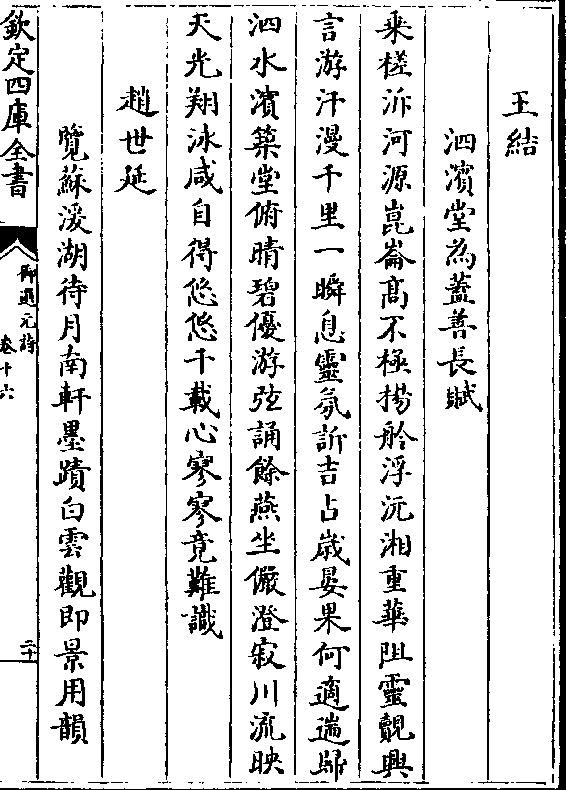 王結
泗濱堂為蓋善長賦
乘槎泝河源崑崙髙不極揚舲浮沅湘重華阻靈覿興
言游汗漫千里一瞬息靈氛訢吉占嵗晏果何適遄歸
泗水濱築堂俯晴碧優游弦誦餘燕坐儼澄寂川流映
天光翔泳咸自得悠悠千載心寥寥竟難識
趙世延
覽蘇湲湖待月南軒墨蹟白雲觀即景用韻
欽定四庫全書
御選元詩
卷十六
二十